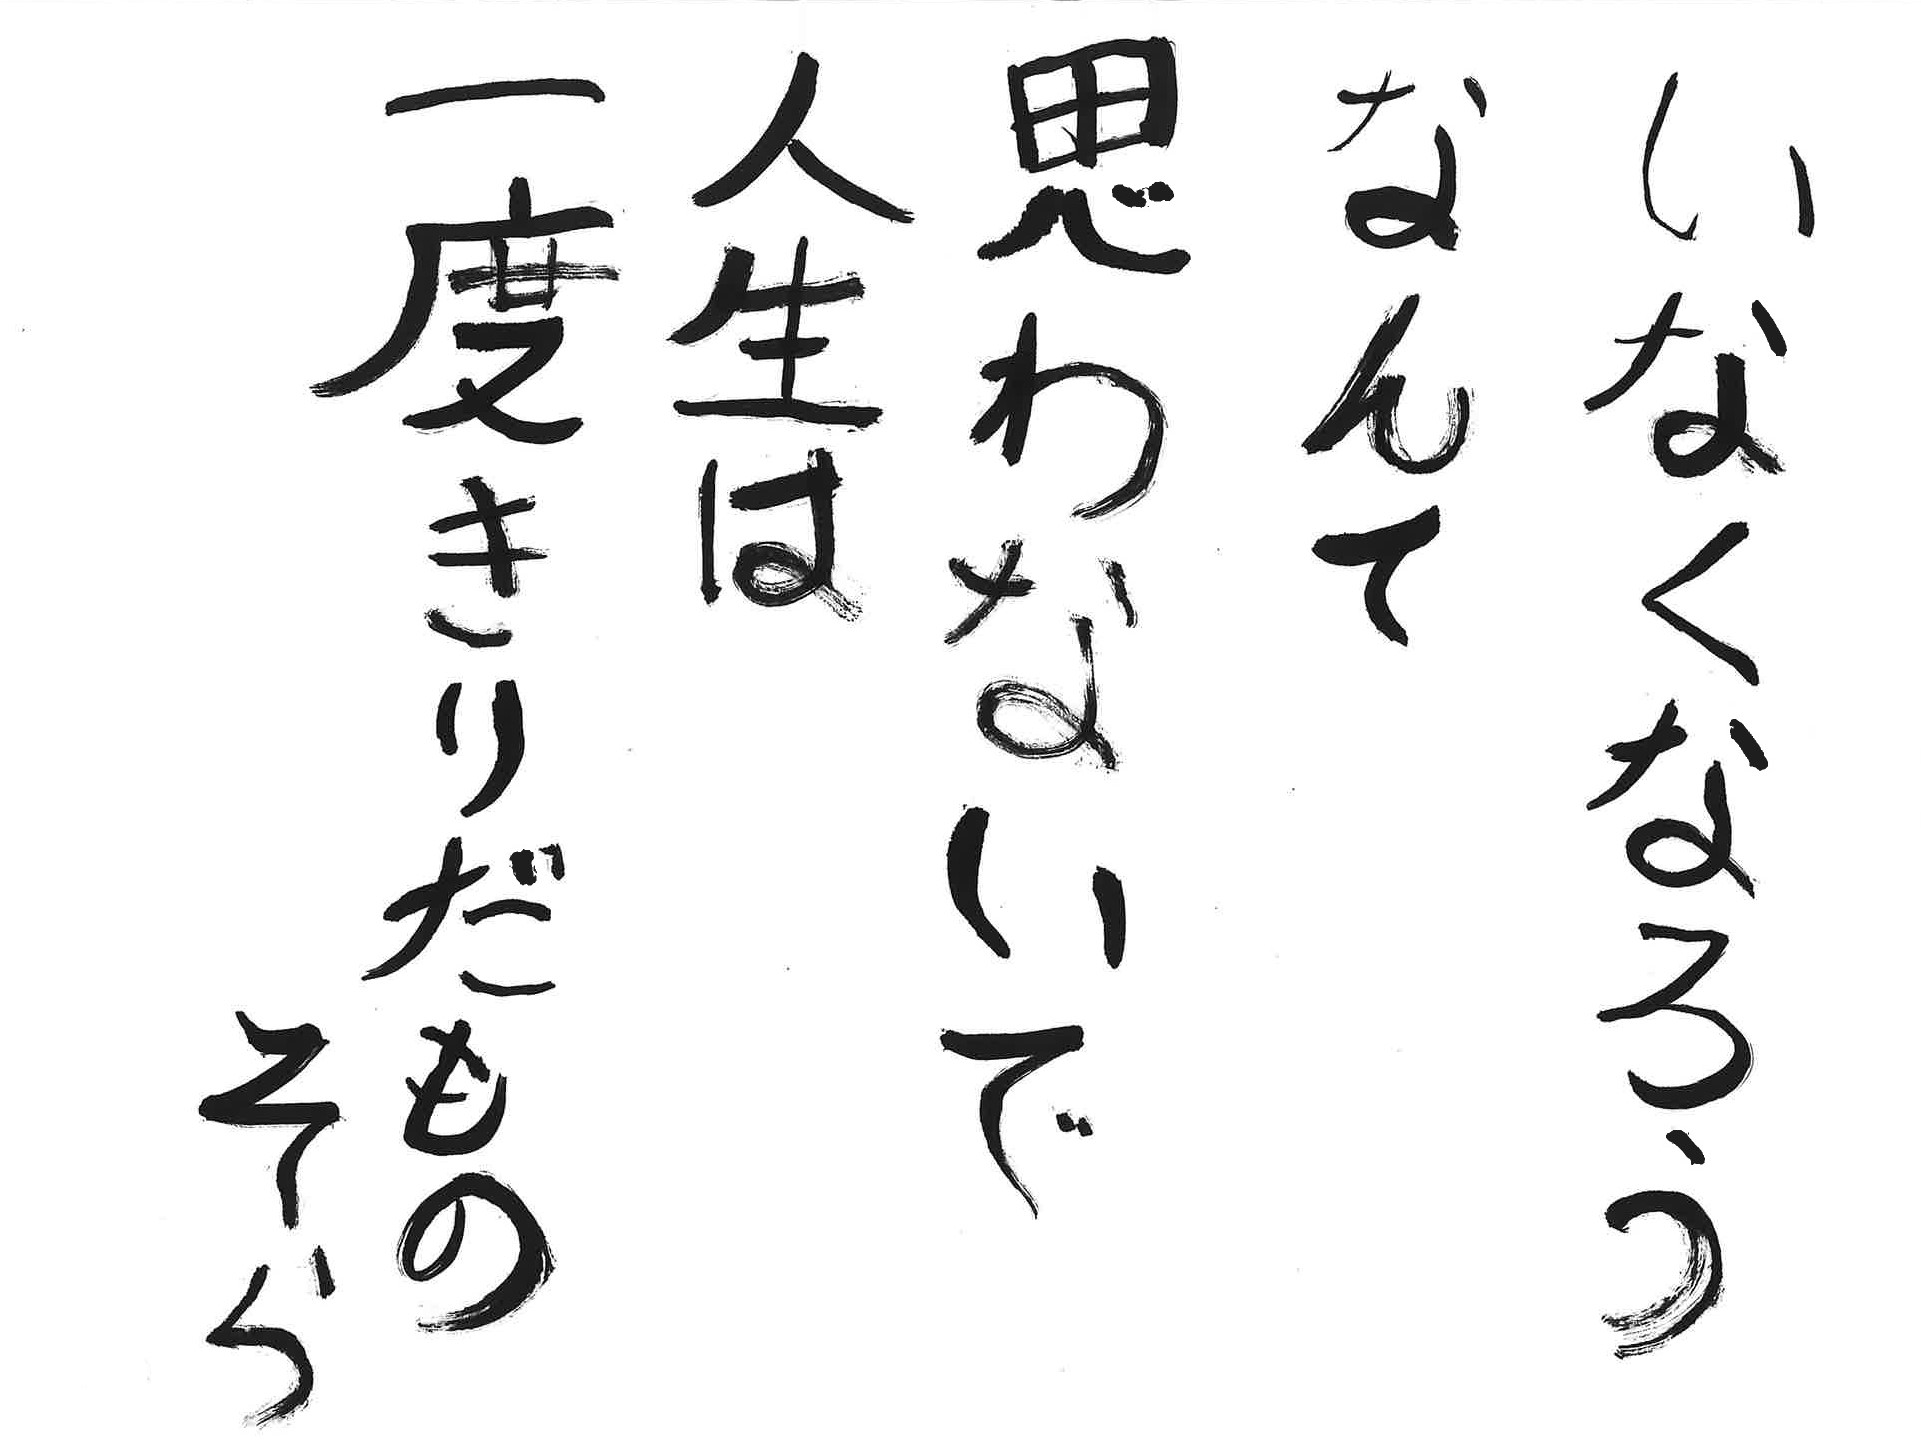 いなくなろう
なんて
思わないで
人生は
一度きりだもの
そら